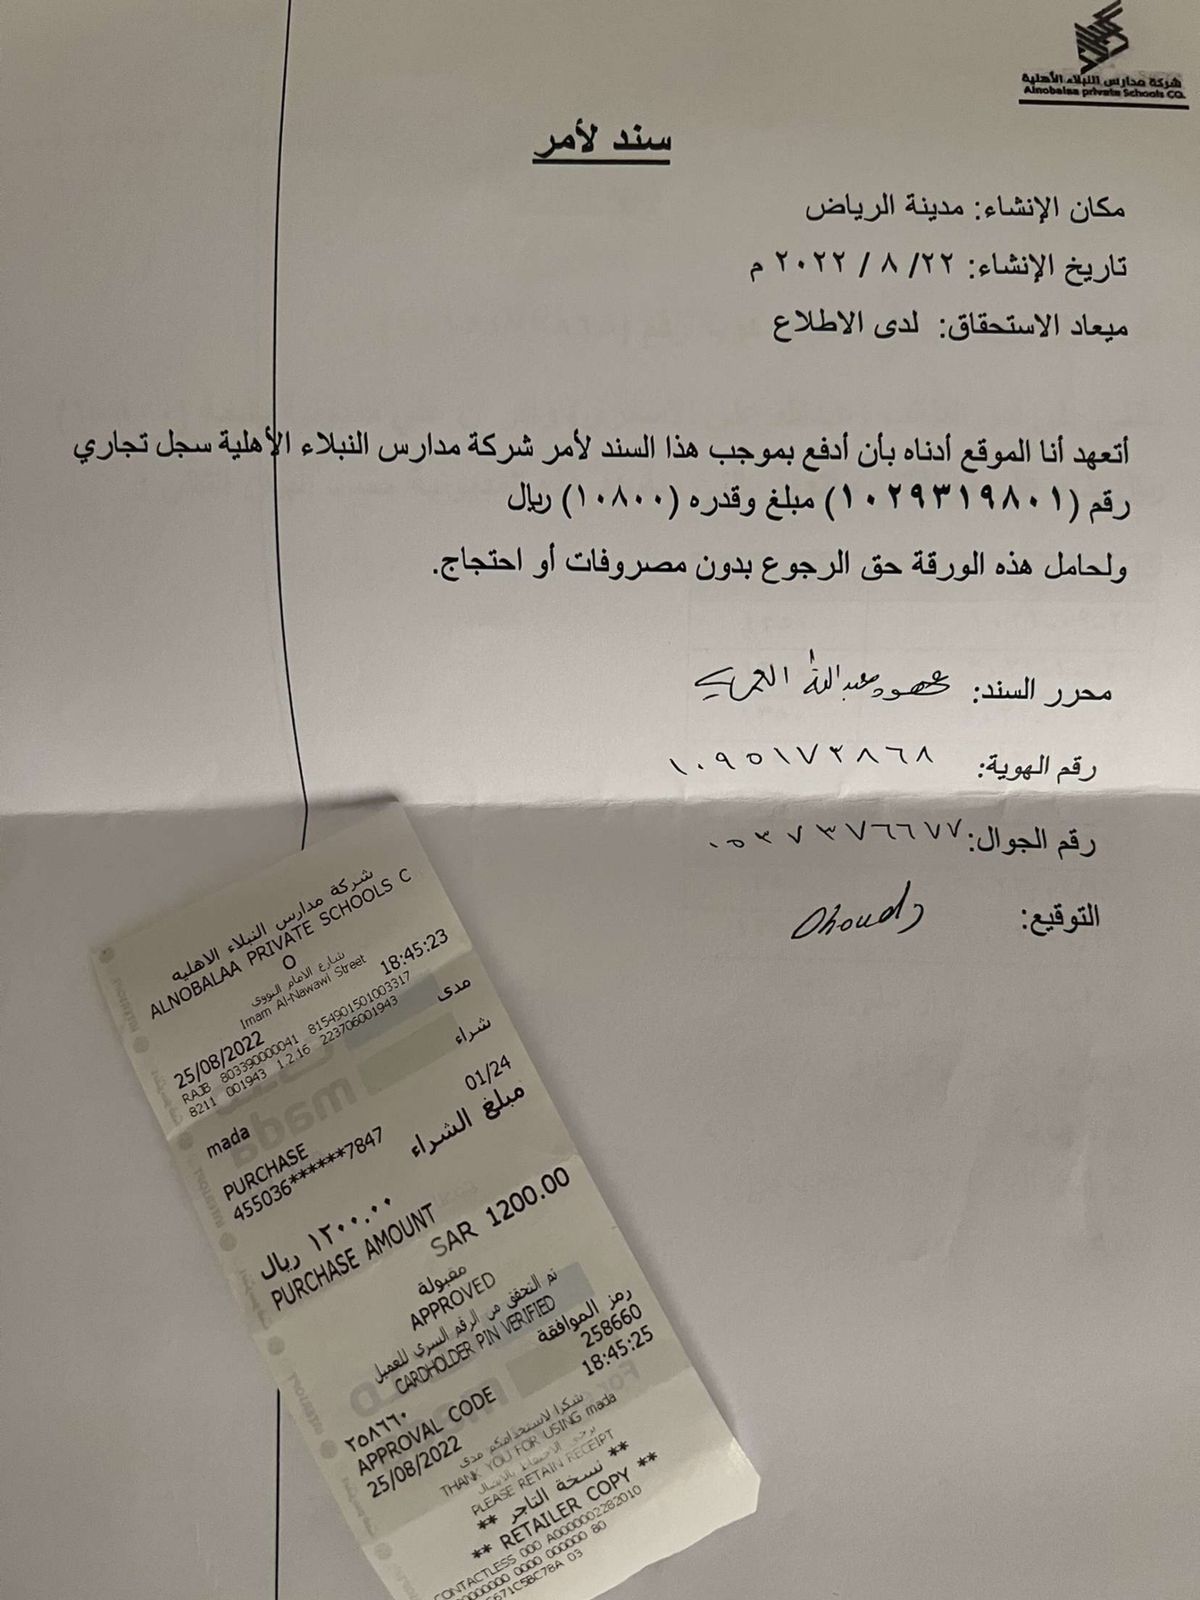 شركة مدارس النبلاء الأهلية
Alnobalaa private Schools CO.
سند لأمر
مكان الإنشاء: مدينة الرياض
تاريخ الإنشاء: ٢٢/ ٨ / ٢٠٢٢ م
ميعاد الاستحقاق: لدى الاطلاع
أتعهد أنا الموقع أدناه بأن أدفع بموجب هذا السند لأمر شركة مدارس النبلاء الأهلية سجل تجاري
رقم (١٠٢٩٣١٩٨٠١) مبلغ وقدره (١٠٨٠٠) ريال
ولحامل هذه الورقة حق الرجوع بدون مصروفات أو احتجاج.
محرر السند: عهود عبدالله العمري
رقم الهوية: ١٠٩٥١٧٣٨٦٨
رقم الجوال: ٠٥٣٧٣٧٦٦٧٧
التوقيع: Ohoud
شركة مدارس النبلاء الاهليه
ALNOBALAA PRIVATE SCHOOLS C
O
شارع الامام النووي
Imam Al-Nawawi Street
25/08/2022 18:45:23
RAJB 803390000041 8154901501003317
8211 001943 1.2.16 223706001943
mada مدى
PURCHASE شراء
455036******7847 01/24
مبلغ الشراء
١٢٠٠.٠٠ ريال
PURCHASE AMOUNT
SAR 1200.00
مقبولة
APPROVED
تم التحقق من الرقم السري للعميل
CARDHOLDER PIN VERIFIED
رمز الموافقة
٢٥٨٦٦٠
APPROVAL CODE 258660
25/08/2022 18:45:25
شكرا لاستخدامكم مدى
THANK YOU FOR USING mada
يرجى الاحتفاظ بالايصال
PLEASE RETAIN RECEIPT
** نسخة التاجر **
** RETAILER COPY **
CONTACTLESS 000 A0000002282010
0000000 0000 000000 80
671C5BC78A 03